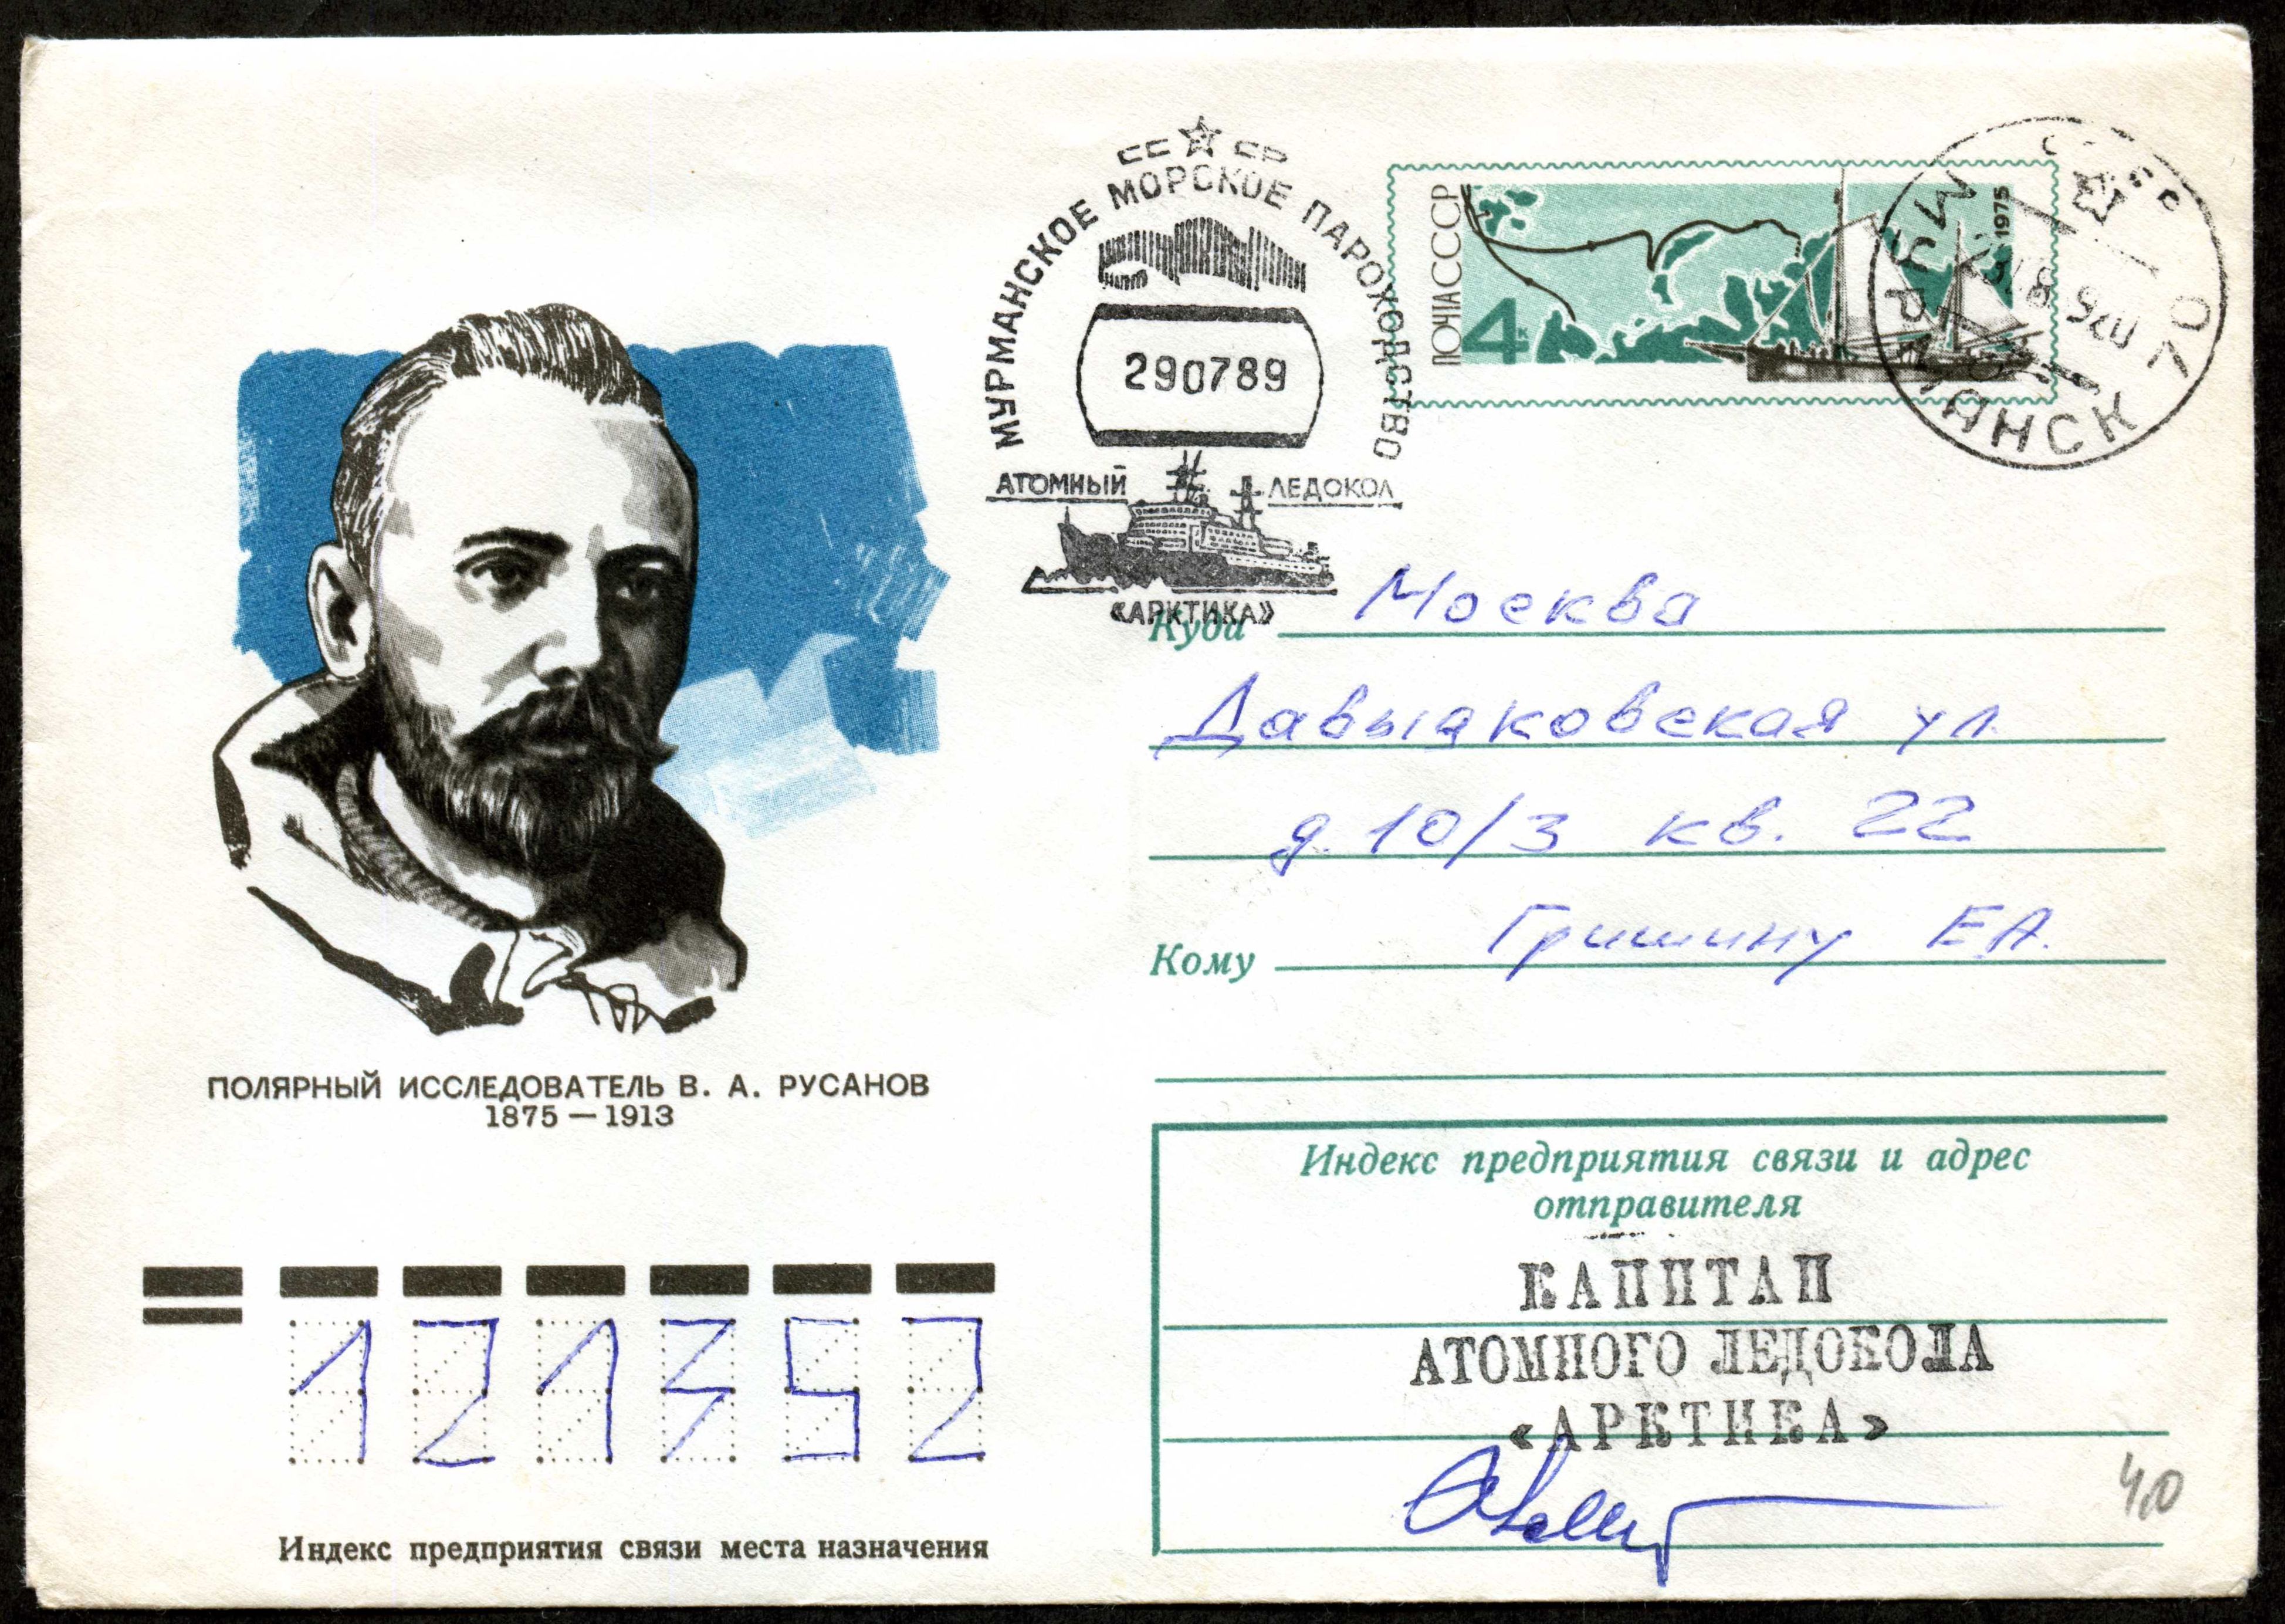 СССР
МУРМАНСКОЕ МОРСКОЕ ПАРОХОДСТВО
290789
АТОМНЫЙ ЛЕДОКОЛ
«АРКТИКА»
ПОЧТА СССР
4к
1975
МУРМАНСК 70
Куда Москва
Давыдковская ул.
д. 10/3 кв. 22
Кому Гришину Е.А.
ПОЛЯРНЫЙ ИССЛЕДОВАТЕЛЬ В. А. РУСАНОВ
1875 — 1913
Индекс предприятия связи и адрес
отправителя
КАПИТАН
АТОМНОГО ЛЕДОКОЛА
«АРКТИКА»
4,0
121352
Индекс предприятия связи места назначения